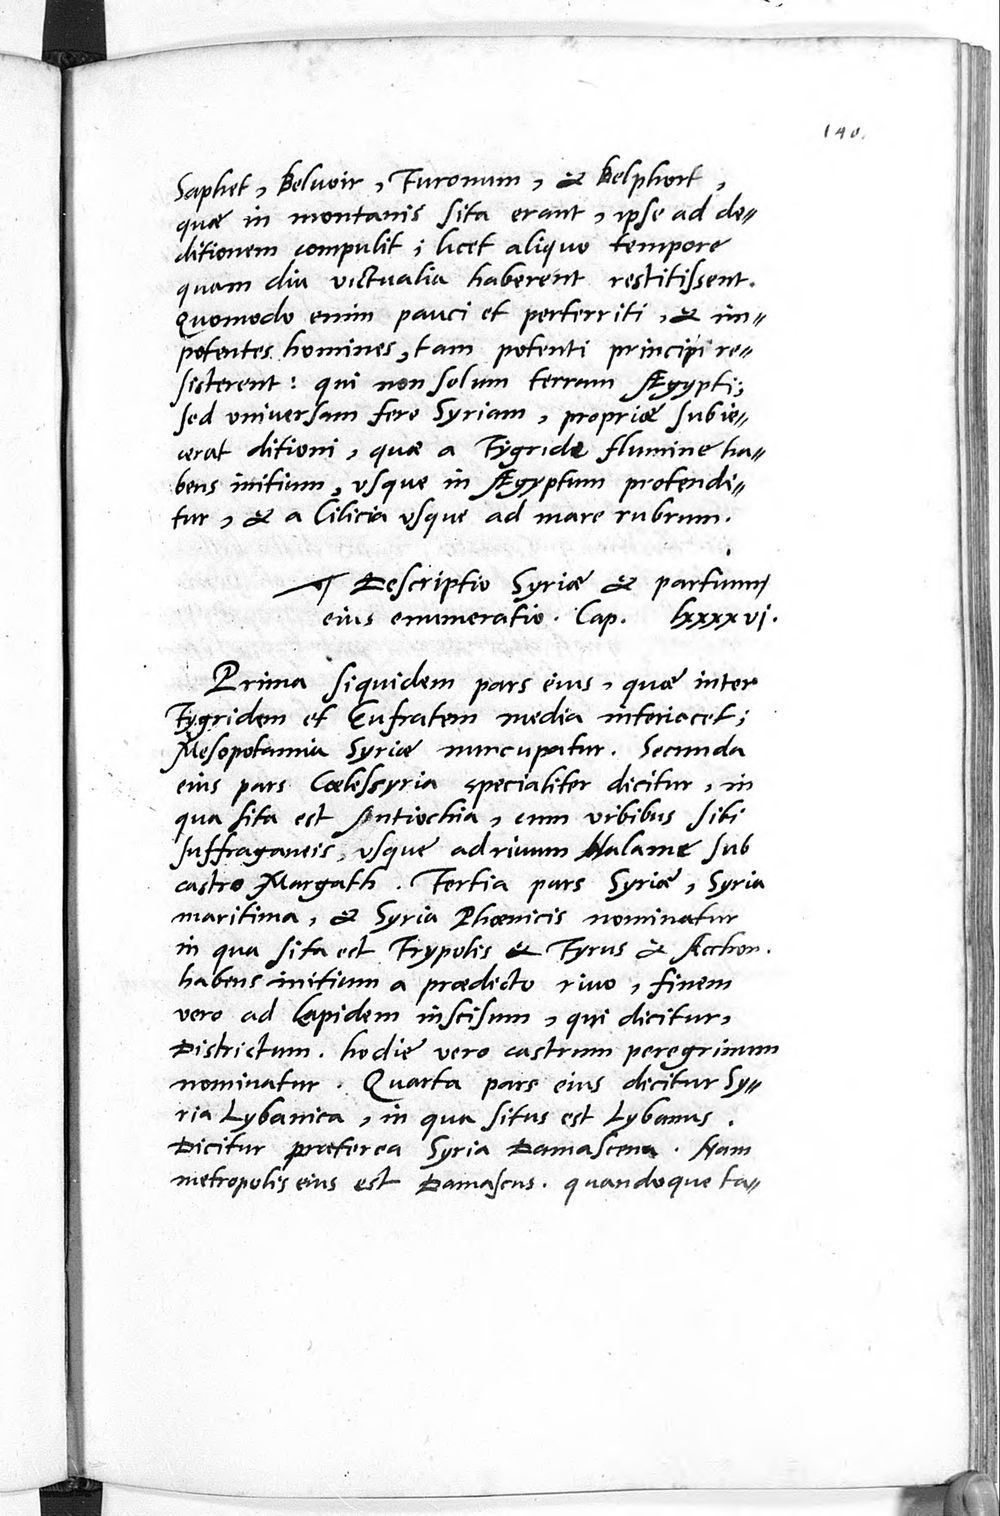 140.
Saphet, Beluoir, Turonum, & Belphort,
quæ in montanis sita erant, ipse ad de„
ditionem compulit; licet aliquo tempore
quam diu victualia haberent restitissent.
Quomodo enim pauci et perterriti, & im„
potentes homines, tam potenti principi re„
sisterent: qui non solum terram Ægypti;
sed vniuersam fere Syriam, propriæ subie„
cerat ditioni, quæ a Tygride flumine ha„
bens initium, vsque in Ægyptum protendi„
tur, & a Cilicia vsque ad mare rubrum.
¶ Descriptio Syriæ & partium
eius enumeratio. Cap. lxxxxvj.
Prima siquidem pars eius, quæ inter
Tygridem et Eufratem media interiacet;
Mesopotamia Syriæ nuncupatur. Secunda
eius pars Cœlessyria specialiter dicitur, in
qua sita est Antiochia, cum vrbibus sibi
suffraganeis, vsque ad riuum Halame sub
castro Margath. Tertia pars Syriæ, Syria
maritima, & Syria Phœnicis nominatur
in qua sita est Trypolis & Tyrus & Acchon.
habens initium a prædicto riuo, finem
vero ad Lapidem inscisum, qui dicitur,
Districtum. hodie vero castrum peregrinum
nominatur. Quarta pars eius dicitur Sy„
ria Lybanica, in qua situs est Lybanus.
Dicitur præterea Syria Damascena. Nam
metropolis eius est Damascus. quandoque ta„